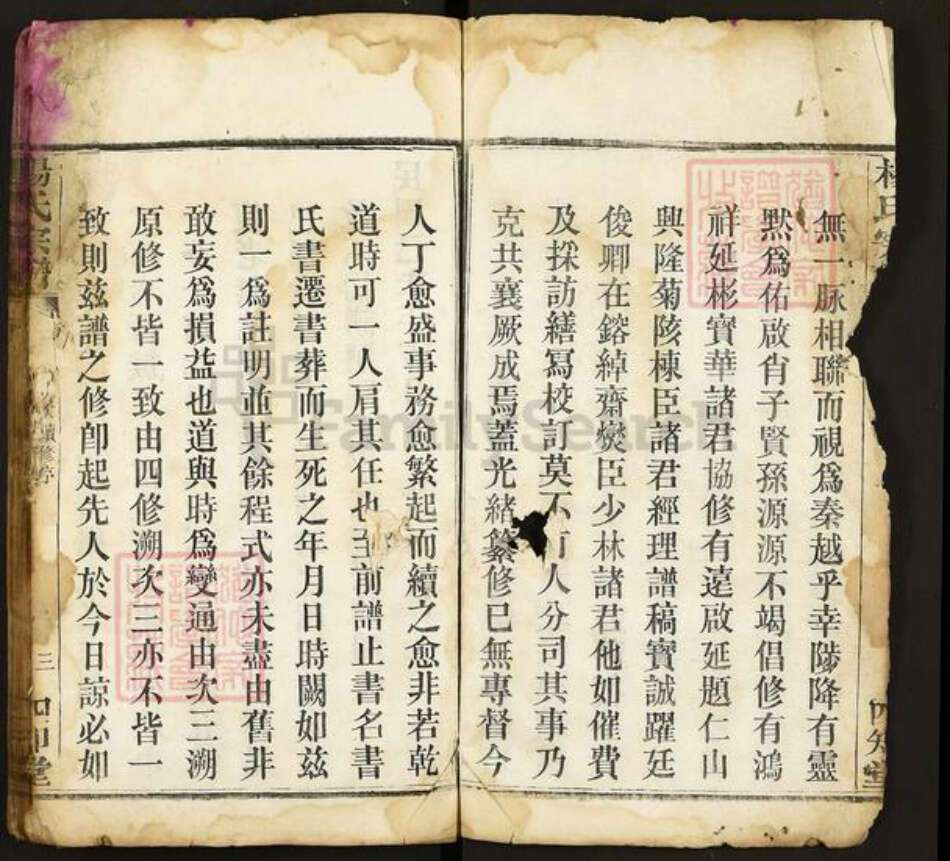 無一脉相聯而視爲秦越乎幸陟降有靈
默爲佑啟肖子賢孫源源不竭倡修有鴻
祥延彬寶華諸君協修有遠啟延題仁山
興隆菊陔棟臣諸君經理譜稿實誠躍廷
俊卿在鎔綽齋爕臣少林諸君他如催費
及採訪繕寫校訂莫不有人分司其事乃
克共襄厥成焉蓋光緒纂修已無專督今
人丁愈盛事務愈繁起而續之愈非若乾
道時可一人肩其任也至前譜止書名書
氏書遷書葬而生死之年月日時闕如兹
則一爲註明並其餘程式亦未盡由舊非
敢妄爲損益也道與時爲變通由次三溯
原修不皆一致由四修溯次三亦不皆一
致則兹譜之修卽起先人於今日諒必如
楊氏宗譜
續修序
三
四知堂
FamilySearch